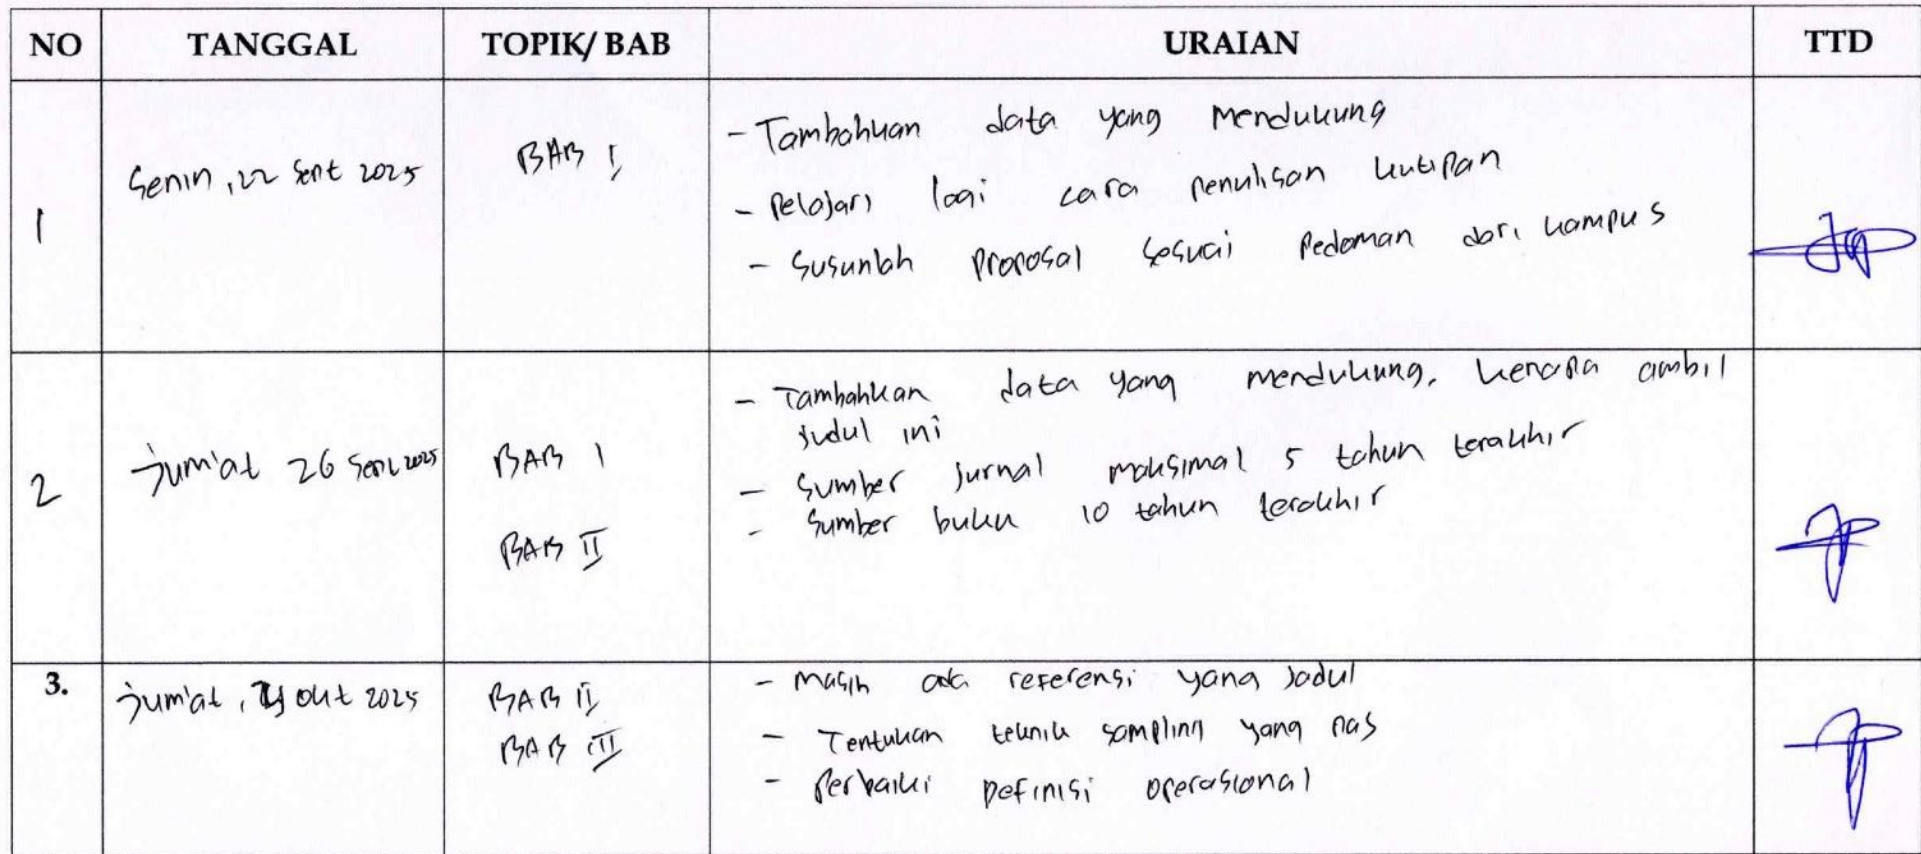 NO TANGGAL TOPIK/ BAB URAIAN TTD
1 Senin, 22 Sept 2025 BAB I
- Tambahkan data yang mendukung
- Pelajari lagi cara penulisan kutipan
- Susunlah proposal sesuai pedoman dari kampus
2 Jum'at 26 Sept 2025 BAB I
BAB II
- Tambahkan data yang mendukung, kenapa ambil
judul ini
- Sumber jurnal maksimal 5 tahun terakhir
- Sumber buku 10 tahun terakhir
3. Jum'at, Okt 2025 BAB II
BAB III
- Masih ada referensi yang jadul
- Tentukan teknik sampling yang pas
- Perbaiki Definisi operasional